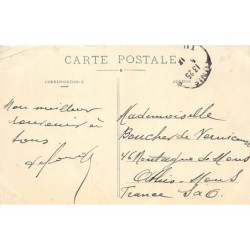 CARTE POSTALE
CORRESPONDANCE
Mon meilleur
souvenir à
tous
Mademoiselle
Boucher de Vernicourt
46 Montagne de Mons
Athis-Mons
France S&O